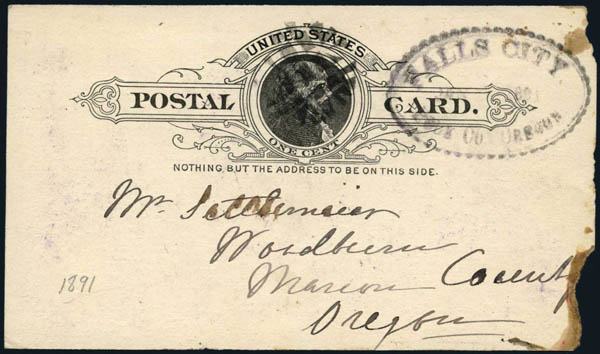 UNITED STATES
POSTAL CARD.
ONE CENT
NOTHING BUT THE ADDRESS TO BE ON THIS SIDE.
FALLS CITY.
POLK CO. OREGON
Mr Settlemeier
Woodburn
Marion County
Oregon
1891